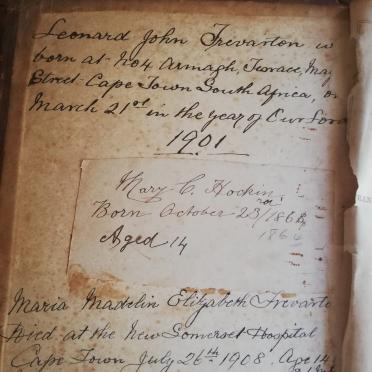 Leonard John Trevarton w
born at No 4 Armagh, Terrace, May
Street Cape Town South Africa, on
March 21st in the year of Our Lord
1901
Mary C. Hockin
Born October 23rd/1868
1868
Aged 14
Maria Madelin Elizabeth Trevarto
Died at the New Somerset Hospital
Cape Town July 26th 1908. Age 14